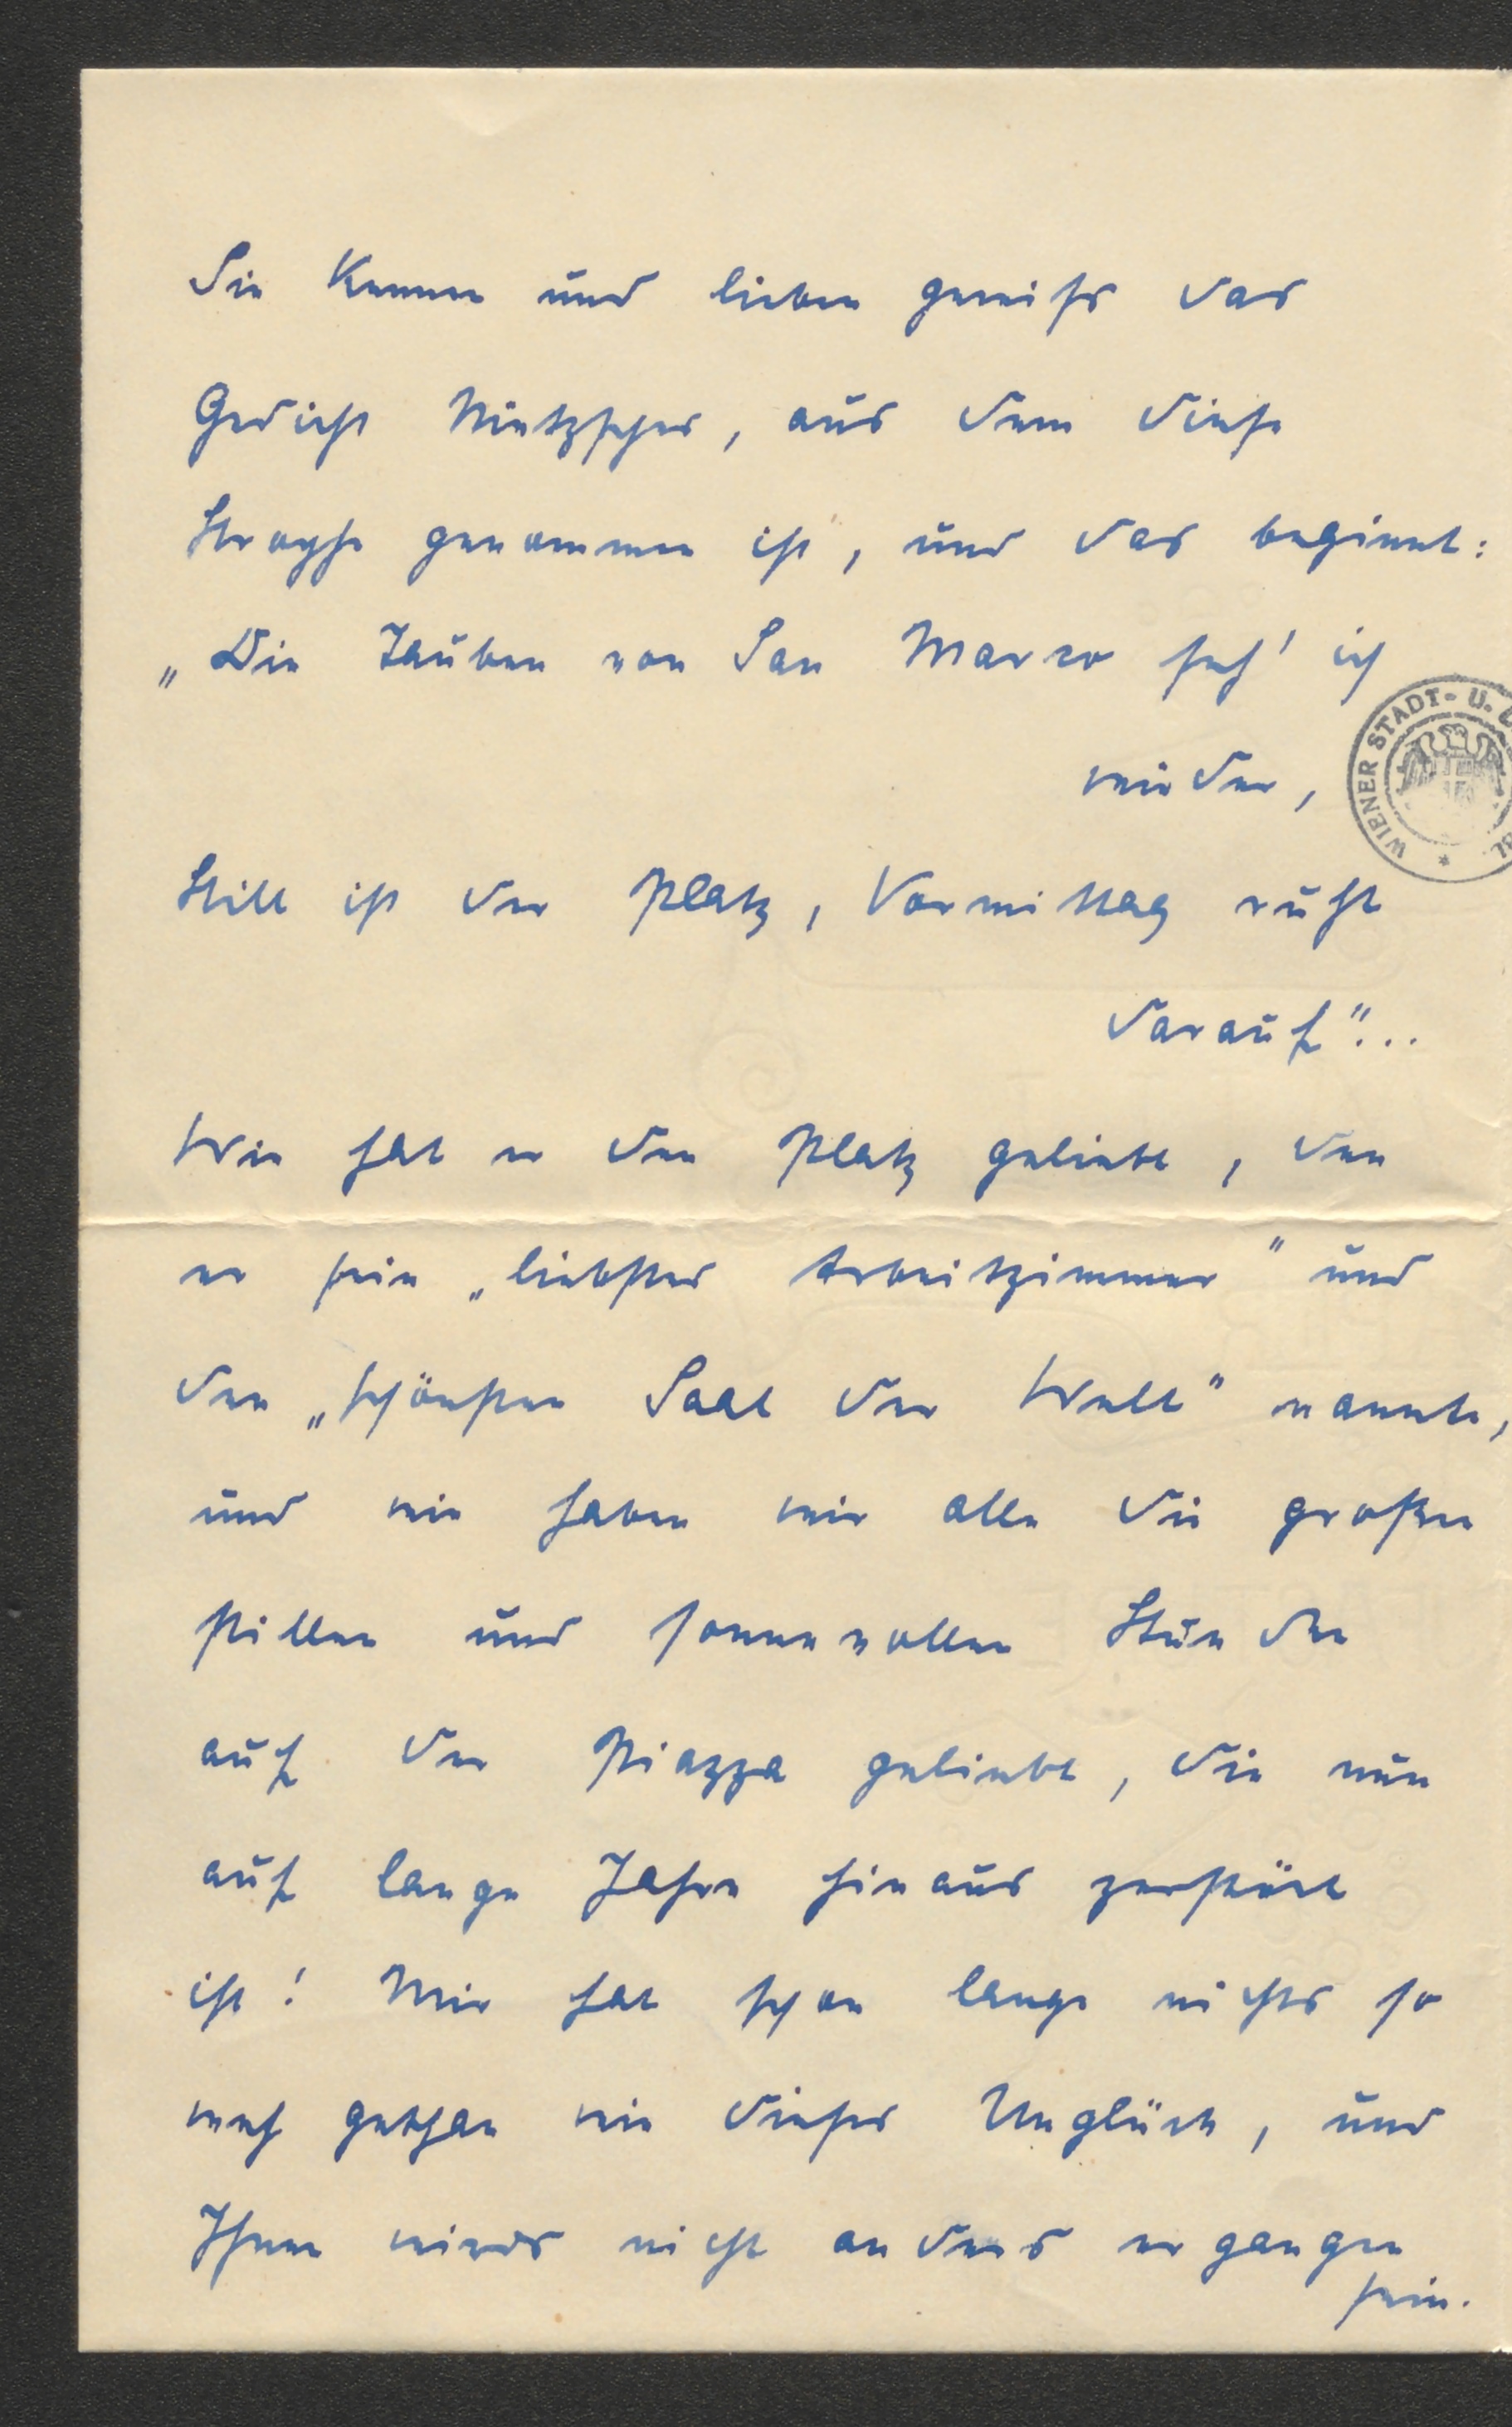 Sie kennen und lieben gewiss das
Gedicht Nietzsches, aus dem diese
Strophe genommen ist, und das beginnt:
„Die Tauben von San Marco seh' ich
wieder,
Still ist der Platz, Vormittag ruht
darauf"...
Wie hat er den Platz geliebt, den
er sein „liebstes Arbeitzimmer" und
den „schönsten Saal der Welt" nannte,
und wie haben wir alle die großen
stillen und sonnenvollen Stunden
auf der Piazza geliebt, die nun
auf lange Jahre hinaus zerstört
ist! Mir hat schon lange nichts so
weh gethan wie dieses Unglück, und
Ihnen wirds nicht anders ergangen
sein.
WIENER STADT- U.